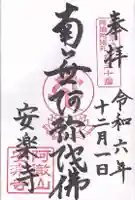 奉拝
令和六年
十二月一日
南無阿弥陀佛
安楽寺